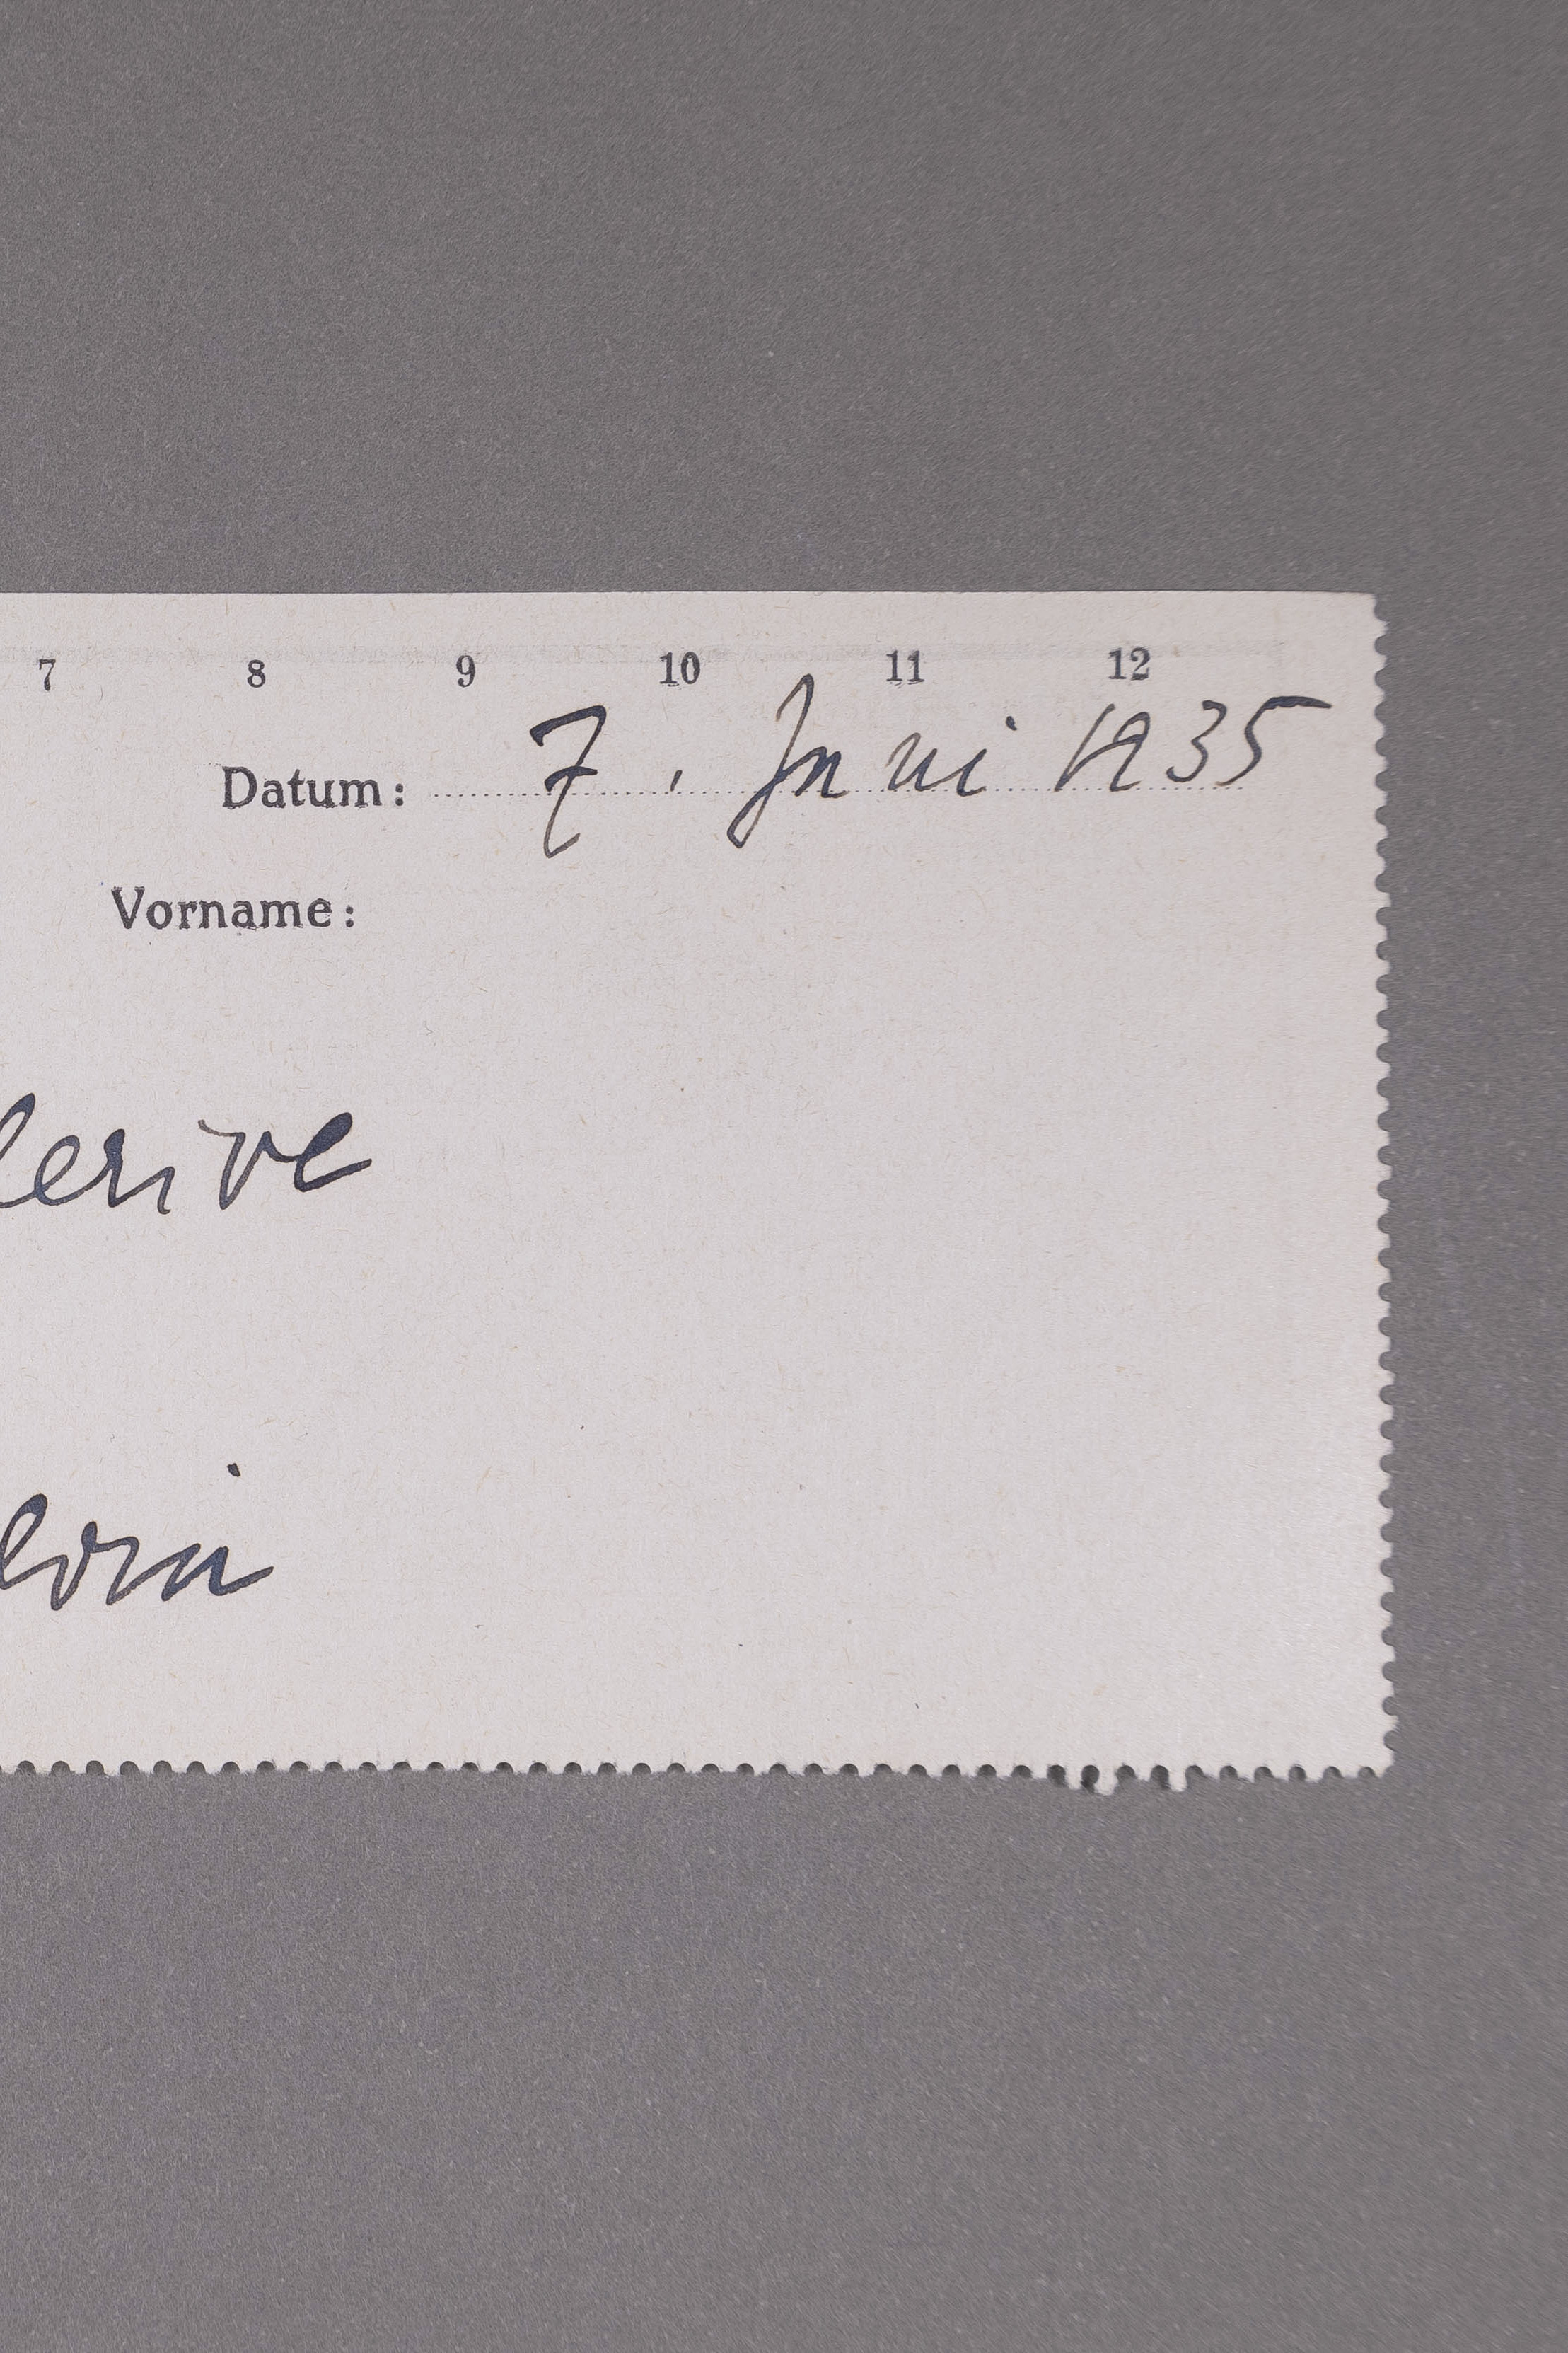 7 8 9 10 11 12
Datum: 7. Juni 1935
Vorname:
lerive